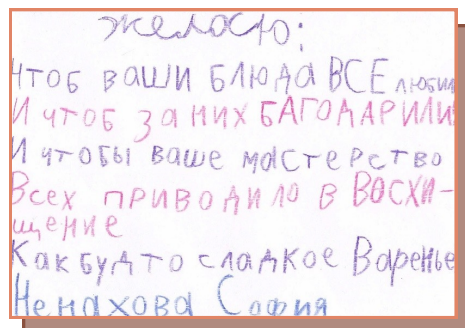 желаю:
Чтоб ваши блюда ВСЕ любили
И чтоб за них БАГОДАРИЛИ
И чтобы ваше мастерство
Всех приводило в Восхи-
щение
Как будто сладкое Варенье
Ненахова София